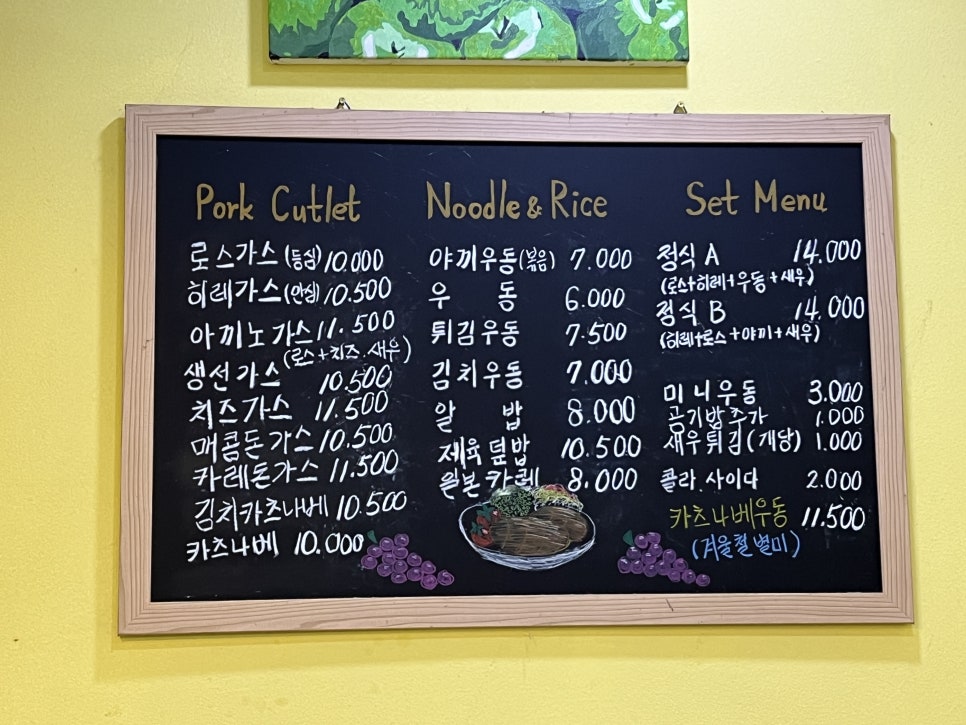 Pork Cutlet
로스가스(등심) 10.000
히레가스(안심) 10.500
야끼노가스 11.500
(로스+치즈.새우)
생선가스 10.500
치즈가스 11.500
매콤돈가스 10.500
카레돈가스 11.500
김치카츠나베 10.500
카츠나베 10.000
Noodle & Rice
야끼우동(볶음) 7.000
우동 6.000
튀김우동 7.500
김치우동 7.000
알밥 8.000
제육덮밥 10.500
일본카레 8.000
Set Menu
정식 A 14.000
(로스+히레+우동+새우)
정식 B 14.000
(히레+로스+야끼+새우)
미니우동 3.000
공기밥추가 1.000
새우튀김(개당) 1.000
콜라.사이다 2.000
카츠나베우동 11.500
(겨울철별미)